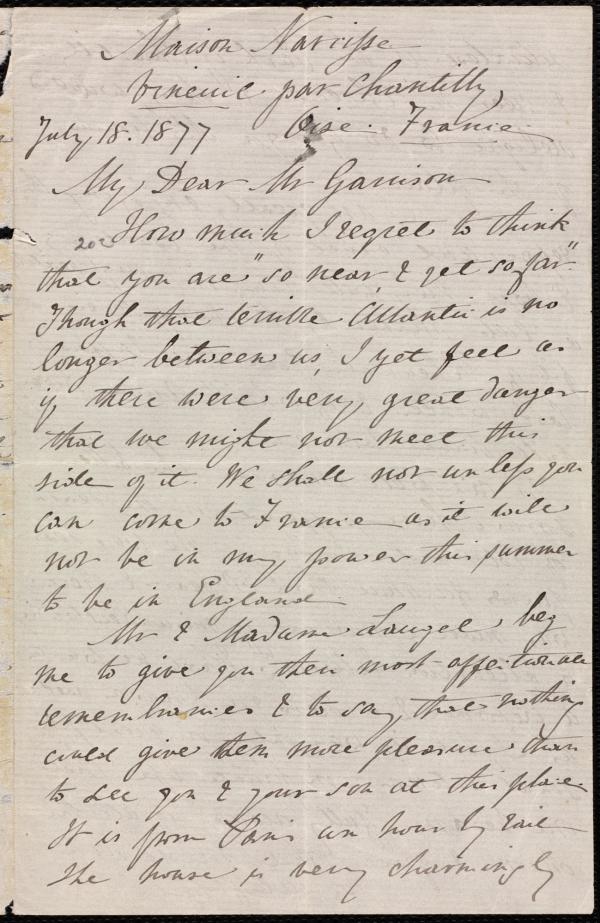 Maison Narcisse
Vineuil par Chantilly,
July 18. 1877 Oise. France.
My Dear Mr Garrison
How much I regret to think
that you are "so near, & yet so far".
Though that terrible Atlantic is no
longer between us, I yet feel as
if, there were very, great danger
that we might not meet this
side of it. We shall not unless you
can come to France as it will
not be in my, power this summer
to be in England.
Mr & Madame Laugel beg
me to give you their most affectionate
remembrances & to say, that nothing
could give them more pleasure than
to see you & your son at this place.
It is from Paris an hour by rail
The house is very charmingly